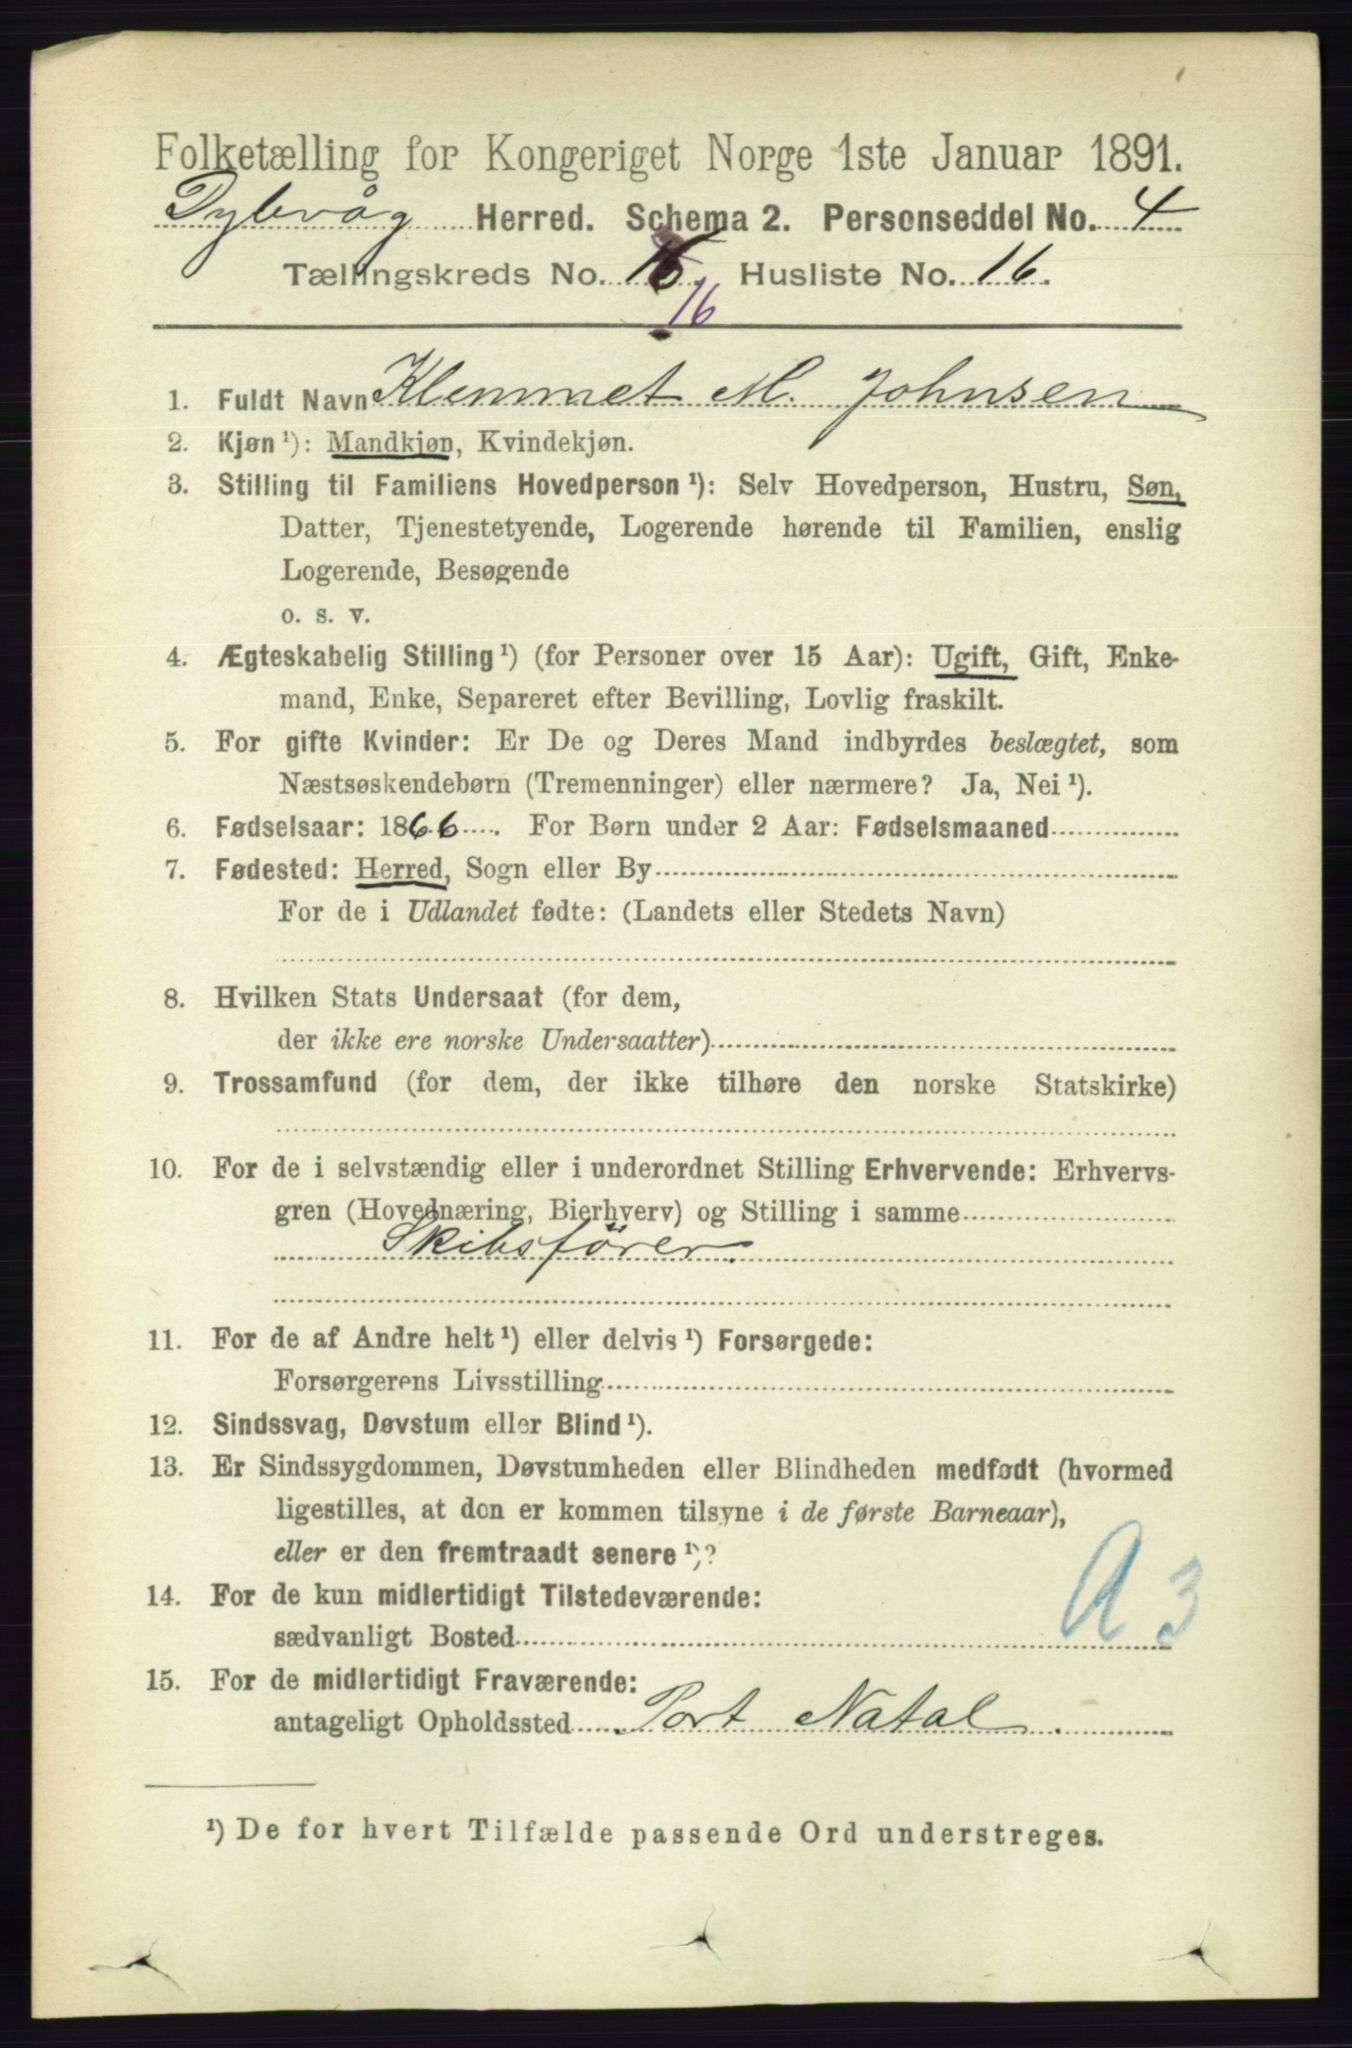 Folketælling for Kongeriget Norge 1ste Januar 1891.
Dybvåg Herred. Schema 2. Personseddel No. 4
Tællingskreds No. Husliste No. 16.
16
1. Fuldt Navn Klemmet M. Johnsen
2. Kjøn ¹): Mandkjøn, Kvindekjøn.
3. Stilling til Familiens Hovedperson ¹): Selv Hovedperson, Hustru, Søn,
Datter, Tjenestetyende, Logerende hørende til Familien, enslig
Logerende, Besøgende
o. s. v.
4. Ægteskabelig Stilling ¹) (for Personer over 15 Aar): Ugift, Gift, Enke-
mand, Enke, Separeret efter Bevilling, Lovlig fraskilt.
5. For gifte Kvinder: Er De og Deres Mand indbyrdes beslægtet, som
Næstsøskendebørn (Tremenninger) eller nærmere? Ja, Nei ¹).
6. Fødselsaar: 1866. For Børn under 2 Aar: Fødselsmaaned
7. Fødested: Herred, Sogn eller By
For de i Udlandet fødte: (Landets eller Stedets Navn)
8. Hvilken Stats Undersaat (for dem,
der ikke ere norske Undersaatter)
9. Trossamfund (for dem, der ikke tilhøre den norske Statskirke)
10. For de i selvstændig eller i underordnet Stilling Erhvervende: Erhvervs-
gren (Hovednæring, Bierhverv) og Stilling i samme
Skibsfører.
11. For de af Andre helt ¹) eller delvis ¹) Forsørgede:
Forsørgerens Livsstilling
12. Sindssvag, Døvstum eller Blind ¹).
13. Er Sindssygdommen, Døvstumheden eller Blindheden medfødt (hvormed
ligestilles, at den er kommen tilsyne i de første Barneaar),
eller er den fremtraadt senere ¹)?
14. For de kun midlertidigt Tilstedeværende:
sædvanligt Bosted
A 3
15. For de midlertidigt Fraværende:
antageligt Opholdssted Port Natal.
¹) De for hvert Tilfælde passende Ord understreges.